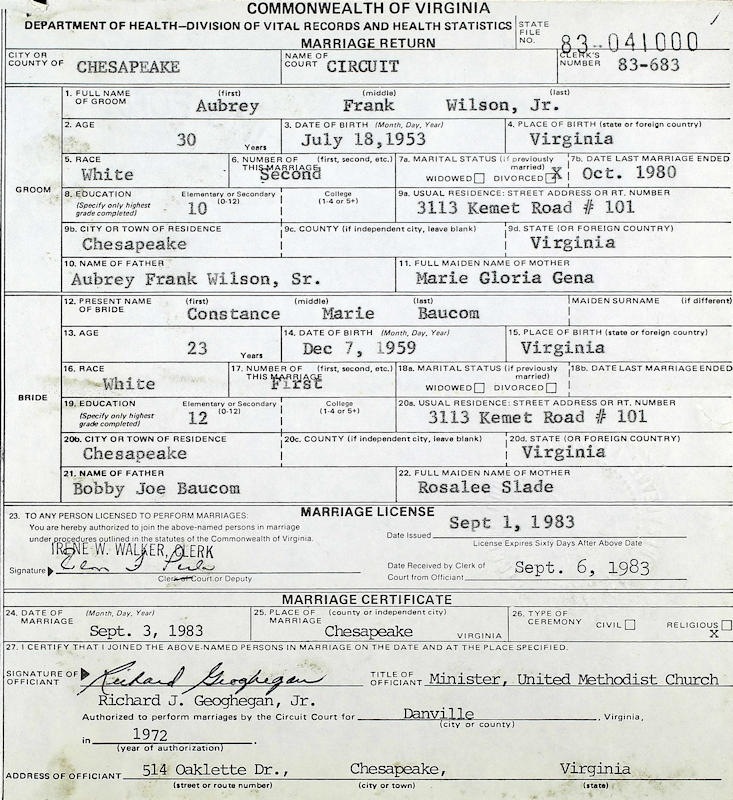 COMMONWEALTH OF VIRGINIA
DEPARTMENT OF HEALTH—DIVISION OF VITAL RECORDS AND HEALTH STATISTICS
MARRIAGE RETURN
STATE FILE NO. 83-041000
CITY OR COUNTY OF CHESAPEAKE NAME OF COURT CIRCUIT CLERK'S NUMBER 83-683
GROOM
1. FULL NAME OF GROOM (first) (middle) (last)
Aubrey Frank Wilson, Jr.
2. AGE 3. DATE OF BIRTH (Month, Day, Year) 4. PLACE OF BIRTH (state or foreign country)
30 Years July 18,1953 Virginia
5. RACE 6. NUMBER OF THIS MARRIAGE (first, second, etc.) 7a. MARITAL STATUS (if previously married) 7b. DATE LAST MARRIAGE ENDED
White Second WIDOWED DIVORCED X Oct. 1980
8. EDUCATION Elementary or Secondary College 9a. USUAL RESIDENCE: STREET ADDRESS OR RT. NUMBER
(Specify only highest grade completed) (0-12) (1-4 or 5+)
10 3113 Kemet Road # 101
9b. CITY OR TOWN OF RESIDENCE 9c. COUNTY (if independent city, leave blank) 9d. STATE (OR FOREIGN COUNTRY)
Chesapeake Virginia
10. NAME OF FATHER 11. FULL MAIDEN NAME OF MOTHER
Aubrey Frank Wilson, Sr. Marie Gloria Gena
BRIDE
12. PRESENT NAME OF BRIDE (first) (middle) (last) MAIDEN SURNAME (if different)
Constance Marie Baucom
13. AGE 14. DATE OF BIRTH (Month, Day, Year) 15. PLACE OF BIRTH (state or foreign country)
23 Years Dec 7, 1959 Virginia
16. RACE 17. NUMBER OF THIS MARRIAGE (first, second, etc.) 18a. MARITAL STATUS (if previously married) 18b. DATE LAST MARRIAGE ENDED
White First WIDOWED DIVORCED
19. EDUCATION Elementary or Secondary College 20a. USUAL RESIDENCE: STREET ADDRESS OR RT. NUMBER
(Specify only highest grade completed) (0-12) (1-4 or 5+)
12 3113 Kemet Road # 101
20b. CITY OR TOWN OF RESIDENCE 20c. COUNTY (if independent city, leave blank) 20d. STATE (OR FOREIGN COUNTRY)
Chesapeake Virginia
21. NAME OF FATHER 22. FULL MAIDEN NAME OF MOTHER
Bobby Joe Baucom Rosalee Slade
MARRIAGE LICENSE
23. TO ANY PERSON LICENSED TO PERFORM MARRIAGES:
You are hereby authorized to join the above-named persons in marriage
under procedures outlined in the statutes of the Commonwealth of Virginia.
Date Issued Sept 1, 1983
License Expires Sixty Days After Above Date
IRENE W. WALKER, CLERK
Signature
Clerk of Court or Deputy
Date Received by Clerk of Court from Officiant Sept. 6, 1983
MARRIAGE CERTIFICATE
24. DATE OF MARRIAGE (Month, Day, Year) 25. PLACE OF MARRIAGE (county or independent city) 26. TYPE OF CEREMONY CIVIL RELIGIOUS X
Sept. 3, 1983 Chesapeake VIRGINIA
27. I CERTIFY THAT I JOINED THE ABOVE-NAMED PERSONS IN MARRIAGE ON THE DATE AND AT THE PLACE SPECIFIED.
SIGNATURE OF OFFICIANT Richard Geoghegan TITLE OF OFFICIANT Minister, United Methodist Church
Richard J. Geoghegan, Jr.
Authorized to perform marriages by the Circuit Court for Danville, Virginia,
(city or county)
in 1972.
(year of authorization)
ADDRESS OF OFFICIANT 514 Oaklette Dr., Chesapeake, Virginia
(street or route number) (city or town) (state)